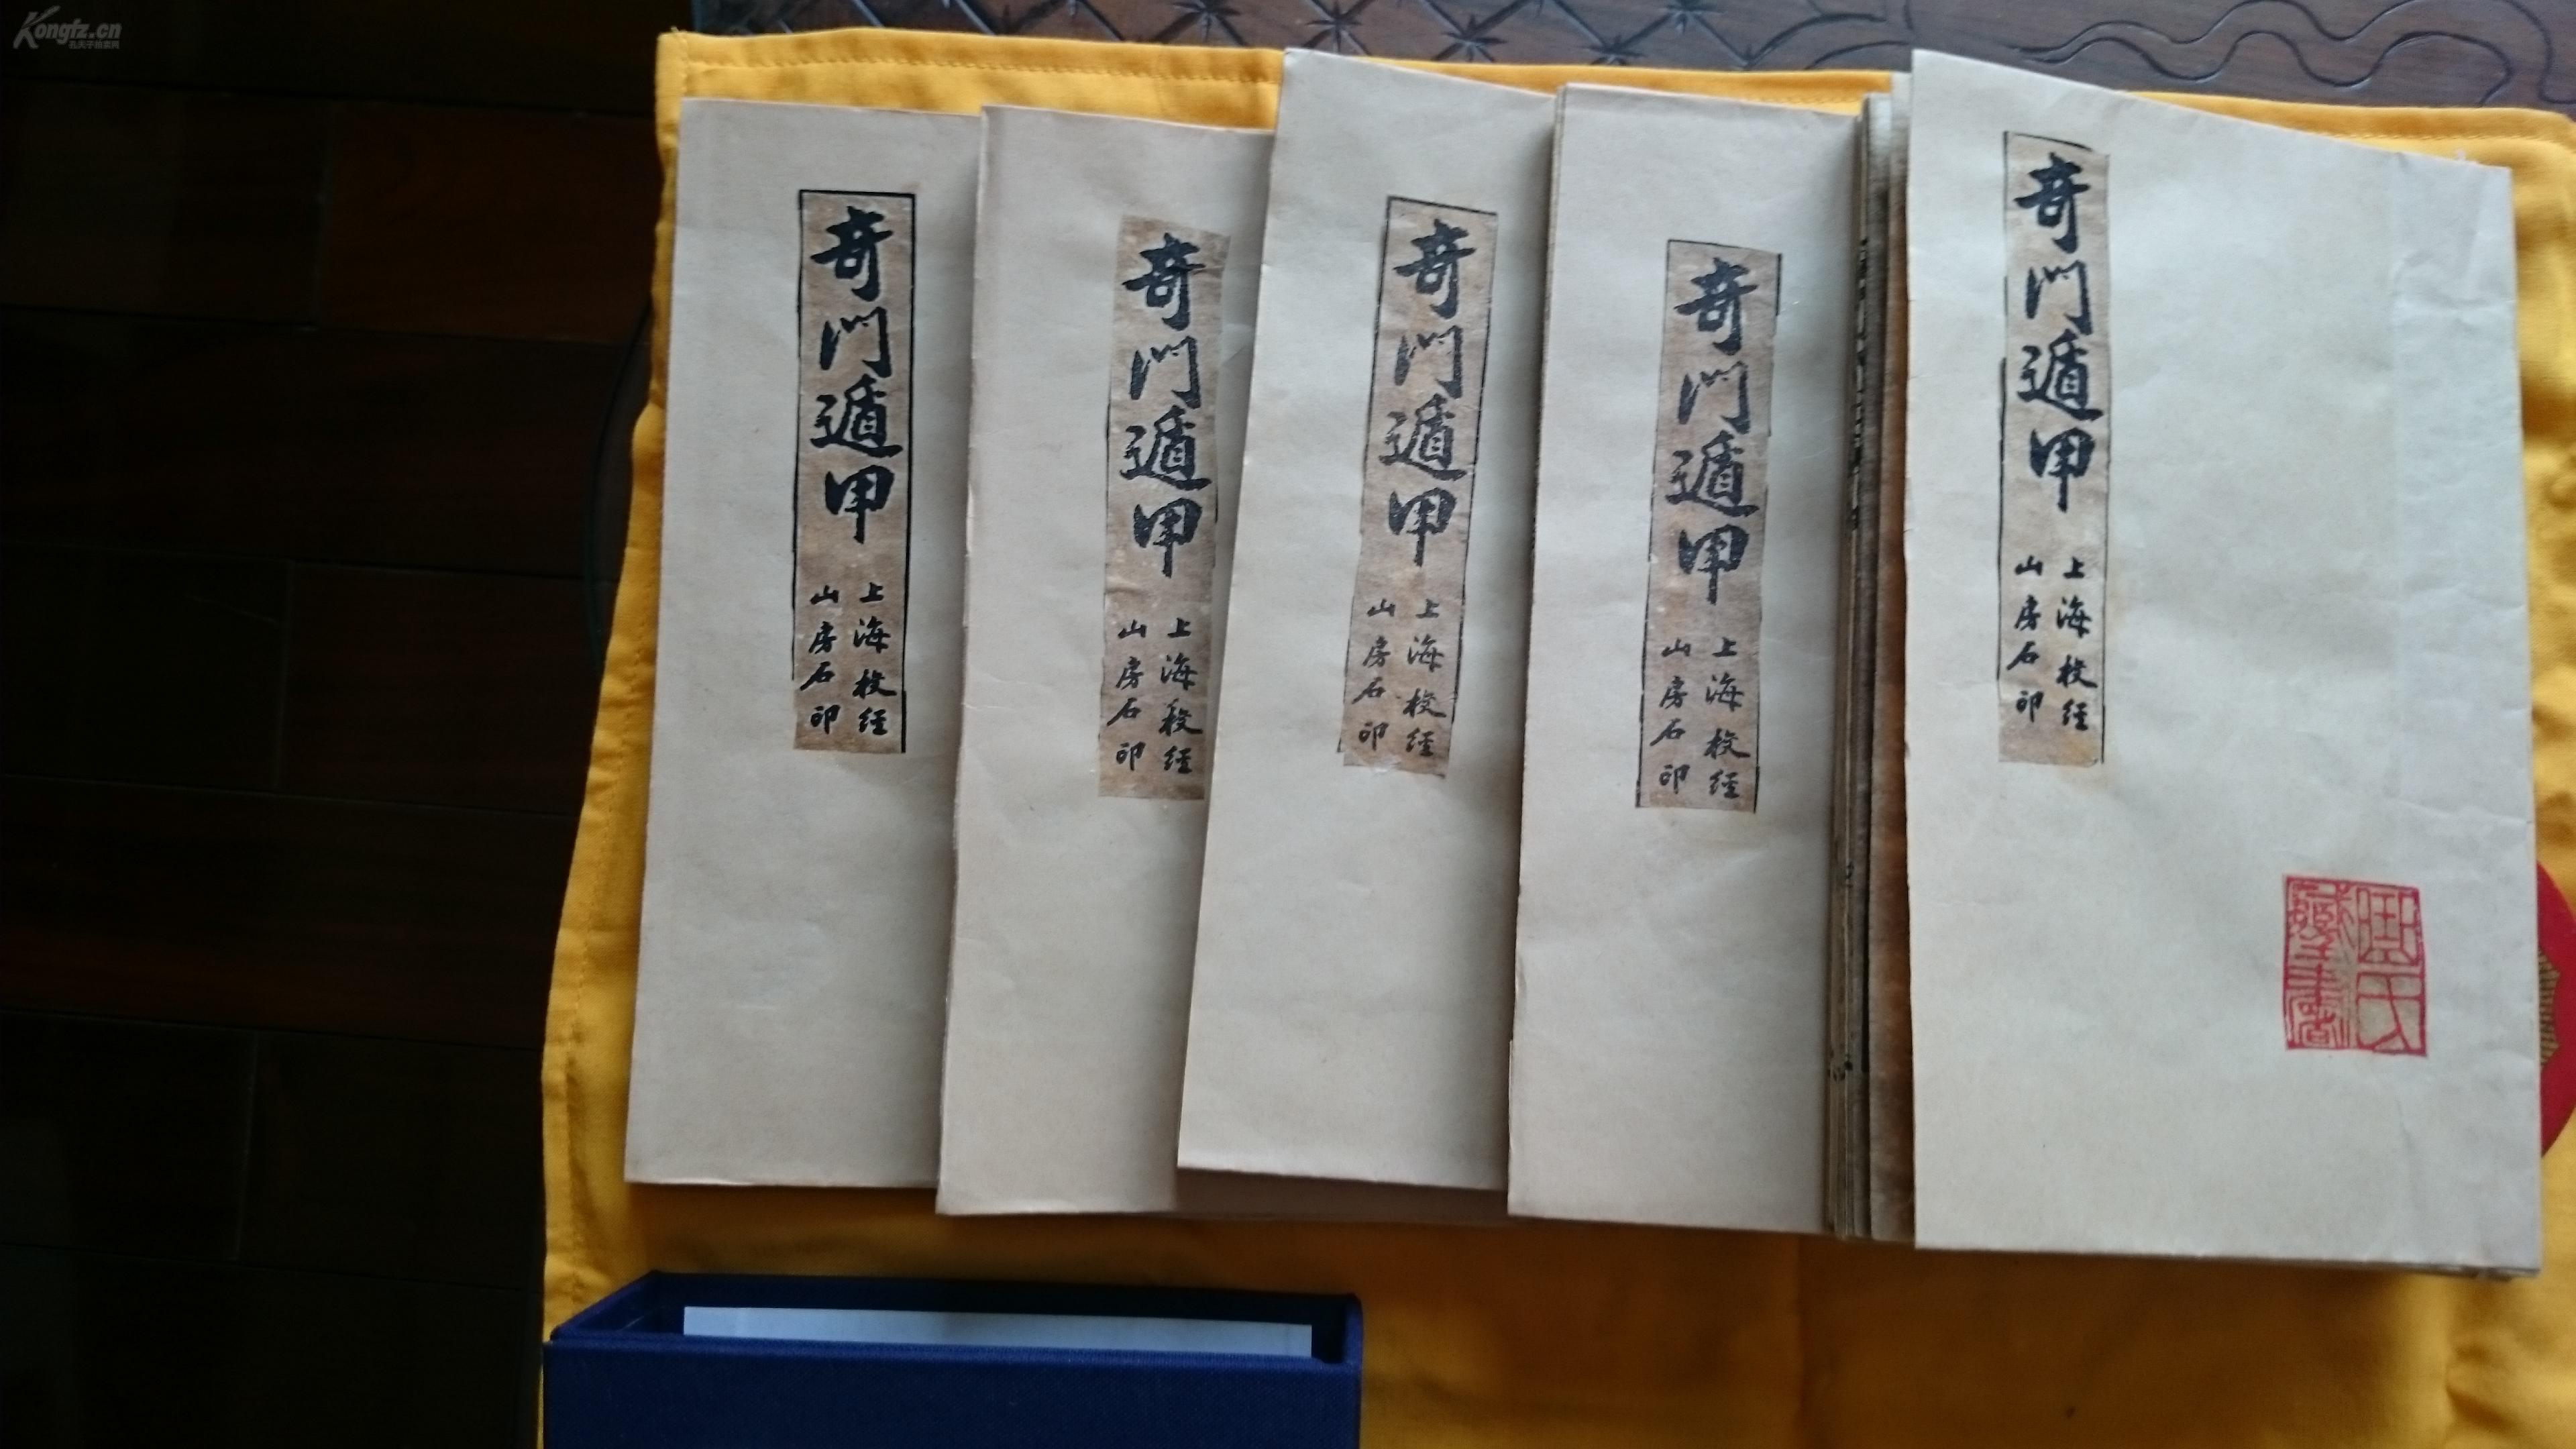 Kongfz.cn
孔夫子拍卖网
奇門遁甲
上海校经
山房石印
奇門遁甲
上海校经
山房石印
奇門遁甲
上海校经
山房石印
奇門遁甲
上海校经
山房石印
奇門遁甲
上海校经
山房石印